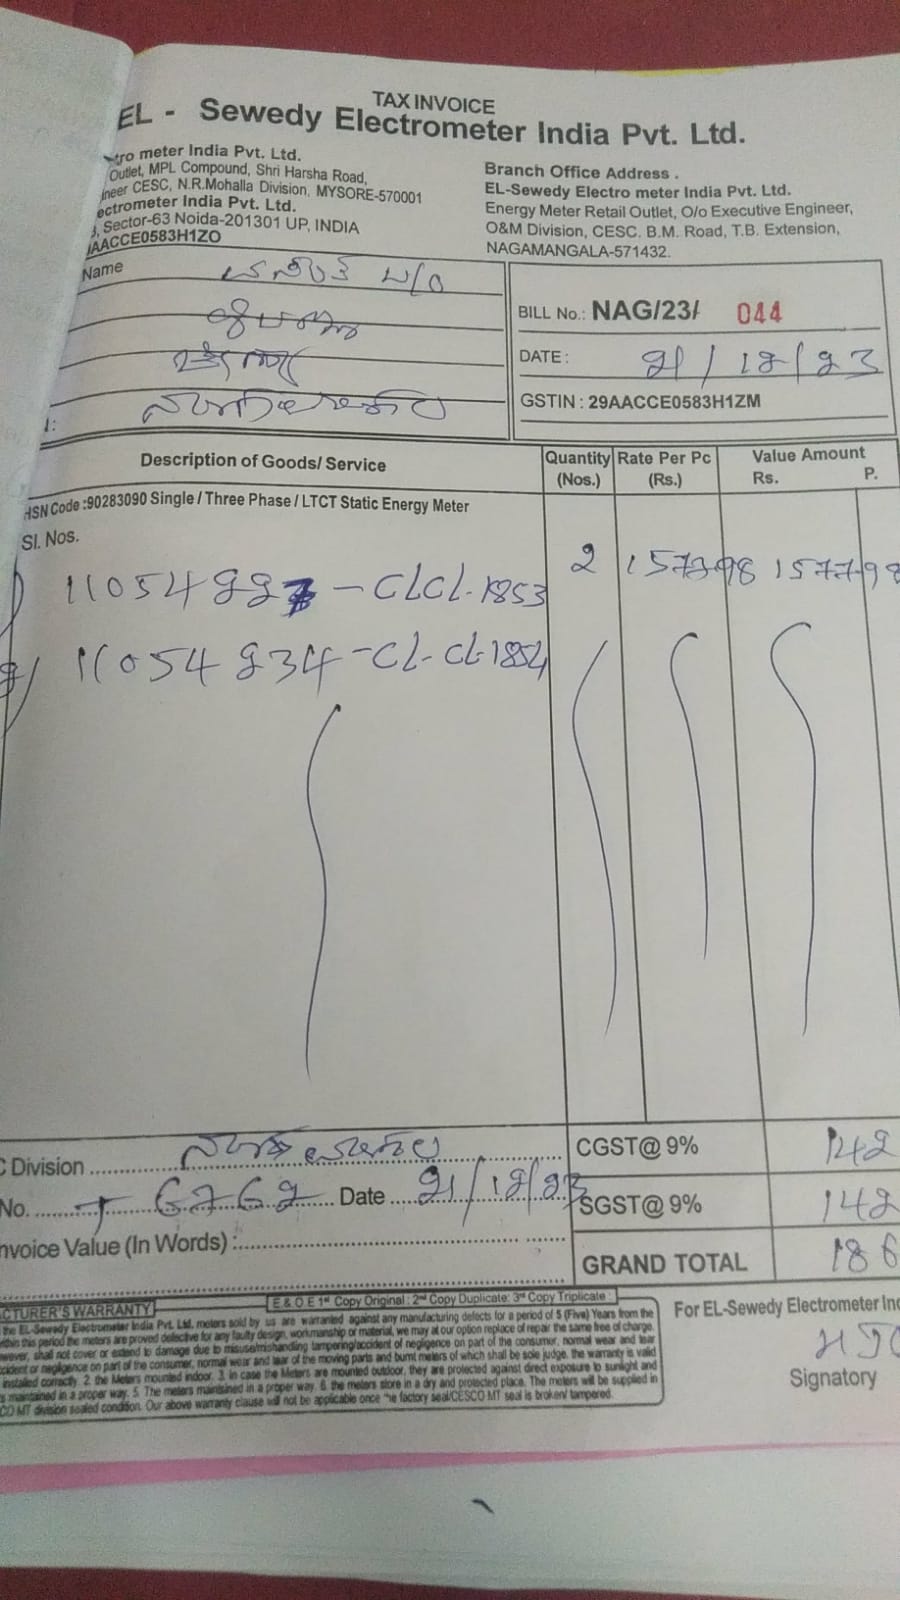 TAX INVOICE
EL - Sewedy Electrometer India Pvt. Ltd.
tro meter India Pvt. Ltd.
Outlet, MPL Compound, Shri Harsha Road,
ineer CESC, N.R.Mohalla Division, MYSORE-570001
ectrometer India Pvt. Ltd.
, Sector-63 Noida-201301 UP, INDIA
AACCE0583H1ZO
Branch Office Address .
EL-Sewedy Electro meter India Pvt. Ltd.
Energy Meter Retail Outlet, O/o Executive Engineer,
O&M Division, CESC. B.M. Road, T.B. Extension,
NAGAMANGALA-571432.
Name
BILL No.: NAG/23/ 044
DATE : 21/12/23
GSTIN : 29AACCE0583H1ZM
Description of Goods/ Service
Quantity (Nos.)
Rate Per Pc (Rs.)
Value Amount
Rs. P.
HSN Code :90283090 Single / Three Phase / LTCT Static Energy Meter
Sl. Nos.
- CLCL-1853
2
1577-98
2) 11054234 - CL-CL-1854
C Division
No. 6762 Date 21/12/23
nvoice Value (In Words) :
CGST@ 9% 142
SGST@ 9% 142
GRAND TOTAL 186
E & O E 1st Copy Original : 2nd Copy Duplicate: 3rd Copy Triplicate :
CTURER'S WARRANTY
the EL-Sewedy Electrometer India Pvt. Ltd, meters sold by us are warranted against any manufacturing defects for a period of 5 (Five) Years from the
ithin this period the meters are proved defective for any faulty design, workmanship or material, we may at our option replace of repair the same free of charge.
wever, shall not cover or extend to damage due to misuse/mishandling tampering/accident of negligence on part of the consumer, normal wear and tear
ccident or negligence on part of the consumer, normal wear and tear of the moving parts and burnt meters of which shall be sole judge. the warranty is valid
installed correctly. 2. the Meters mounted indoor. 3. In case the Meters are mounted outdoor, they are protected against direct exposure to sunlight and
s maintained in a proper way. 5. The meters maintained in a proper way. 6. the meters store in a dry and protected place. The meters will be supplied in
CO MT division sealed condition. Our above warranty clause will not be applicable once the factory seal/CESCO MT seal is broken/ tampered.
For EL-Sewedy Electrometer Ind
Signatory